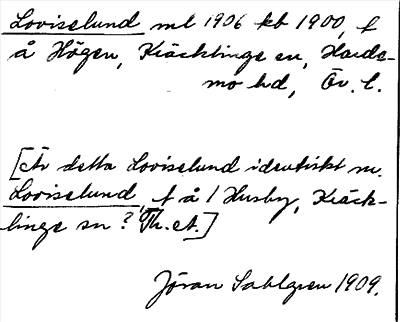 Loviselund mt 1906 kb 1900, f
å Högen, Kräcklinge sn, Hards-
mo hd, Ör. l.
[Är detta Loviselund identiskt m.
Loviselund, f å 1 Husby, Kräck-
linge sn? Th. A.]
Jöran Sahlgren 1909.